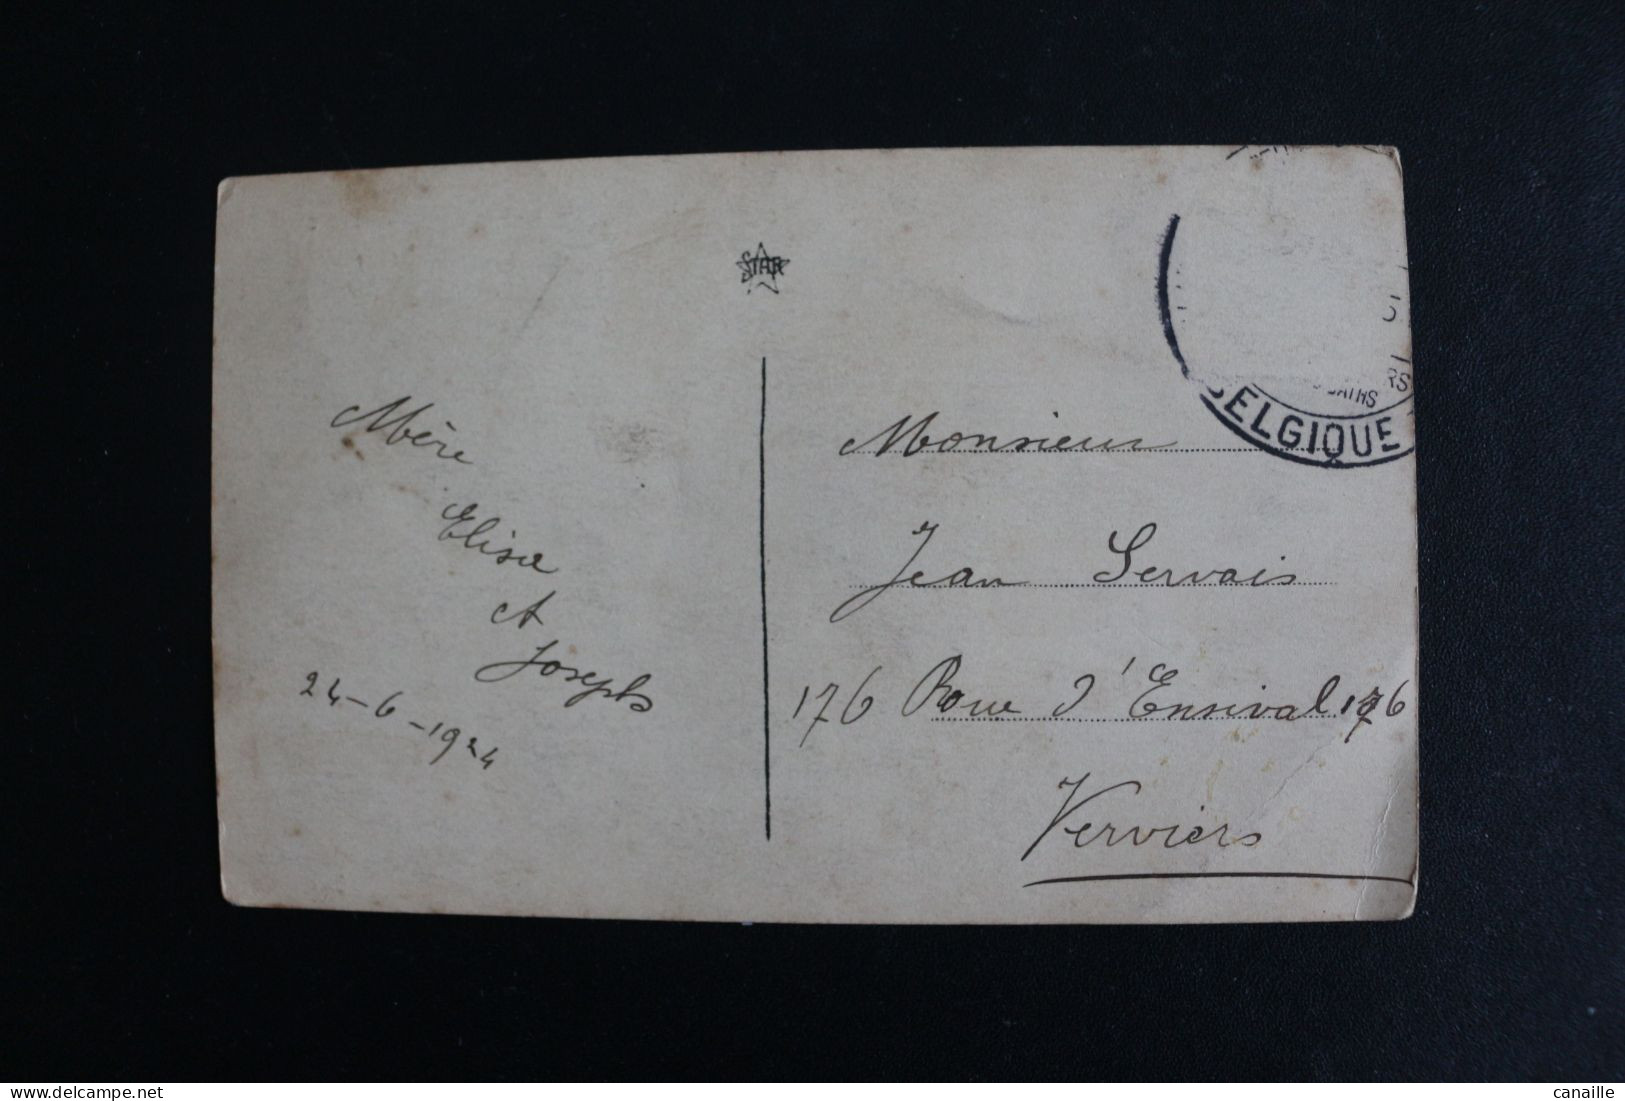 STAR
Mère
Elise
et
Joseph
24-6-1924
BELGIQUE
Monsieur
Jean Servais
176 Rue d'Ensival 176
Verviers
delcampe.net
canaille